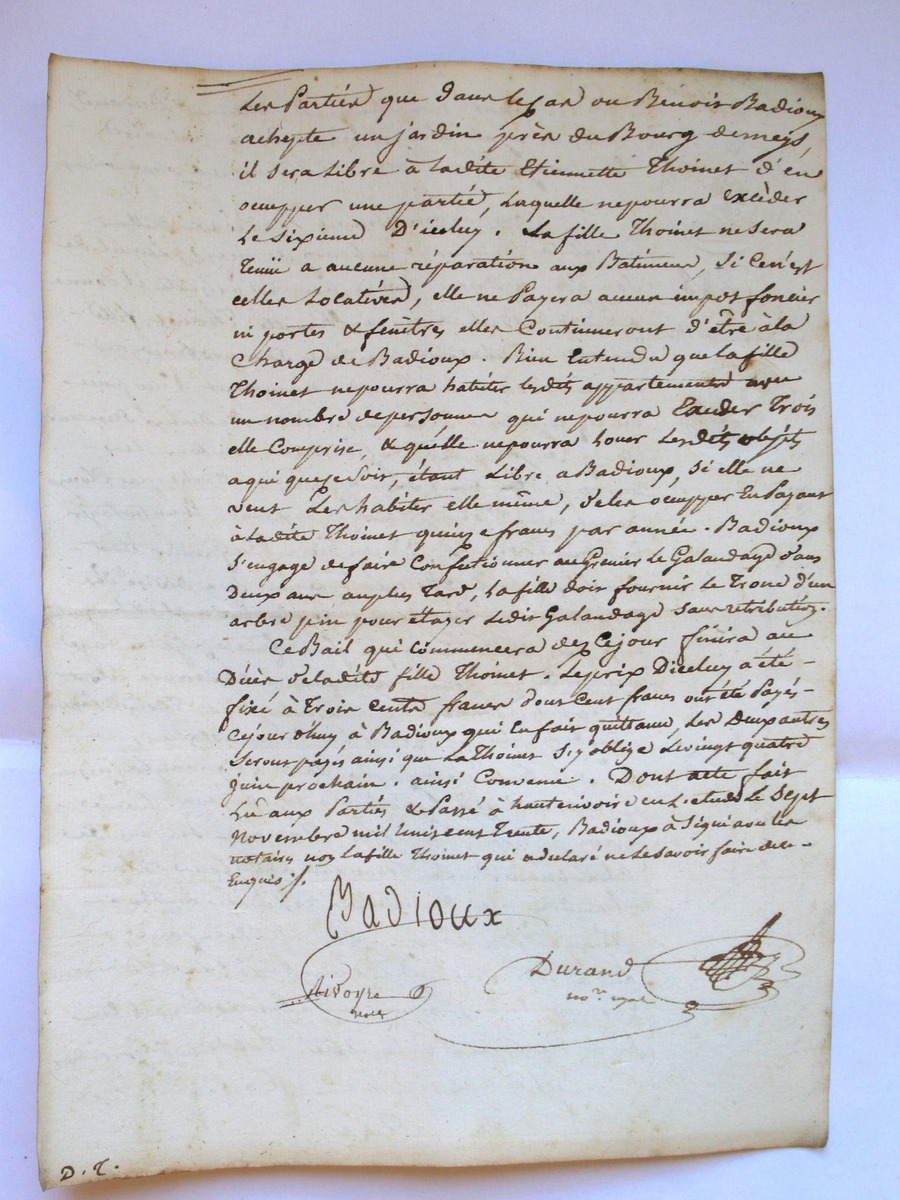 Les Partiés que dans le cas ou Benoit Badioux
achepte un jardin près du Bourg demeys,
il sera Libre à Ladite Etiennette Thoinet d'én
ocupper une partié, Laquelle nepourra excèder
Le sixieme D'iceluy. La fille Thoinet ne Sera
Tenüe a aucune réparation aux Batimens, Si ce n'est
celles Locatives, elle ne Payera aucun impot foncier
ni portes & fenêtres elles Continueront d'être àla
Charge de Badioux. Bien Entendu que lafille
Thoinet nepourra habiter lesdits appartements avec
un nombre depersonnes qui nepourra Excèder Trois
elle Comprise, & qu'elle nepourra Louer Lesdits objets
a qui que ce Soit, étant Libre a Badioux, Si elle ne
veut Les habiter elle même, deles ocupper En Payant
à Ladite Thoinet quinze francs par année. Badioux
S'engage defaire Confectionner au Grenier Le Galandage dans
Deux ans auplus Tard, La fille doit fournir Le Tronc d'un
arbre pin pour étayer Ledit Galandage Sans retribution.
Ce Bail qui commencera dez Cejour finira au
Décès deladite fille Thoinet. Leprix Diceluy a été
fixé à Trois Cents francs dont Cent francs ont été Payés
cejourd'huy à Badioux qui En fait quittance, Les Deux autres
Seront payés ainsi que La Thoinet S'y oblige Le vingt quatre
juin prochain. ainsi Convenu. Dont acte fait
Lu aux Parties & Passé à hauterivoire en L'etude Le Sept
Novembre mil huit cent Trente, Badioux à Signé avec les
notaires non la fille Thoinet qui a declaré ne Le savoir faire de ce
Enquis ./.
Badioux
Rivoyre
nore
Durand
nore royal
D. T.